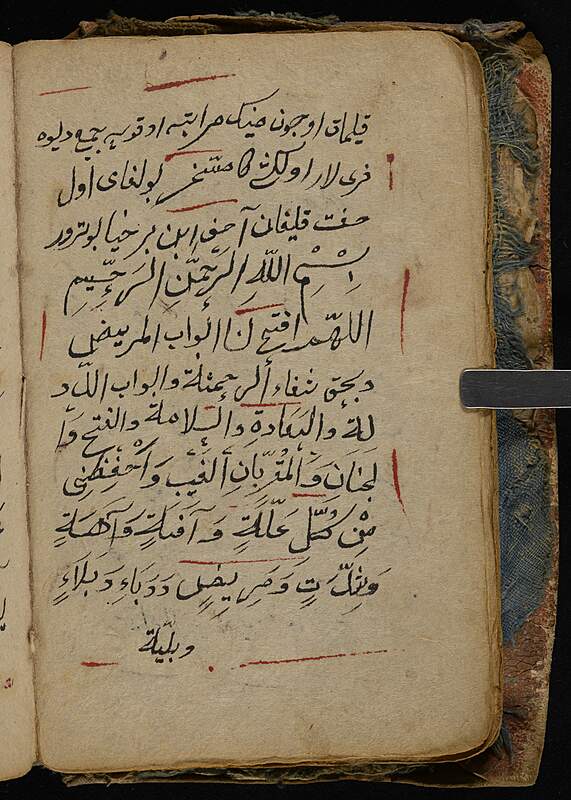 قیلماق اوچون مینك مراتبه اوقوسه جمع دیوه
فری لار اولكشی كا مسخر بولغای اول
صفت قیلغان آصف ابن برخیا بوترور
بِسْمِ اللّٰهِ الرَّحْمٰنِ الرَّحِیمِ
اللهم افتح لنا ابواب المریض
و بحق شفاء الرحمة وابواب الد
لة والسعادة والسلامة والفتح وا
لجنان والمقربان الغیب واحفظنی
من كل علة وآفة وآهة
ومریض ووباء وبلاء
وبلیة